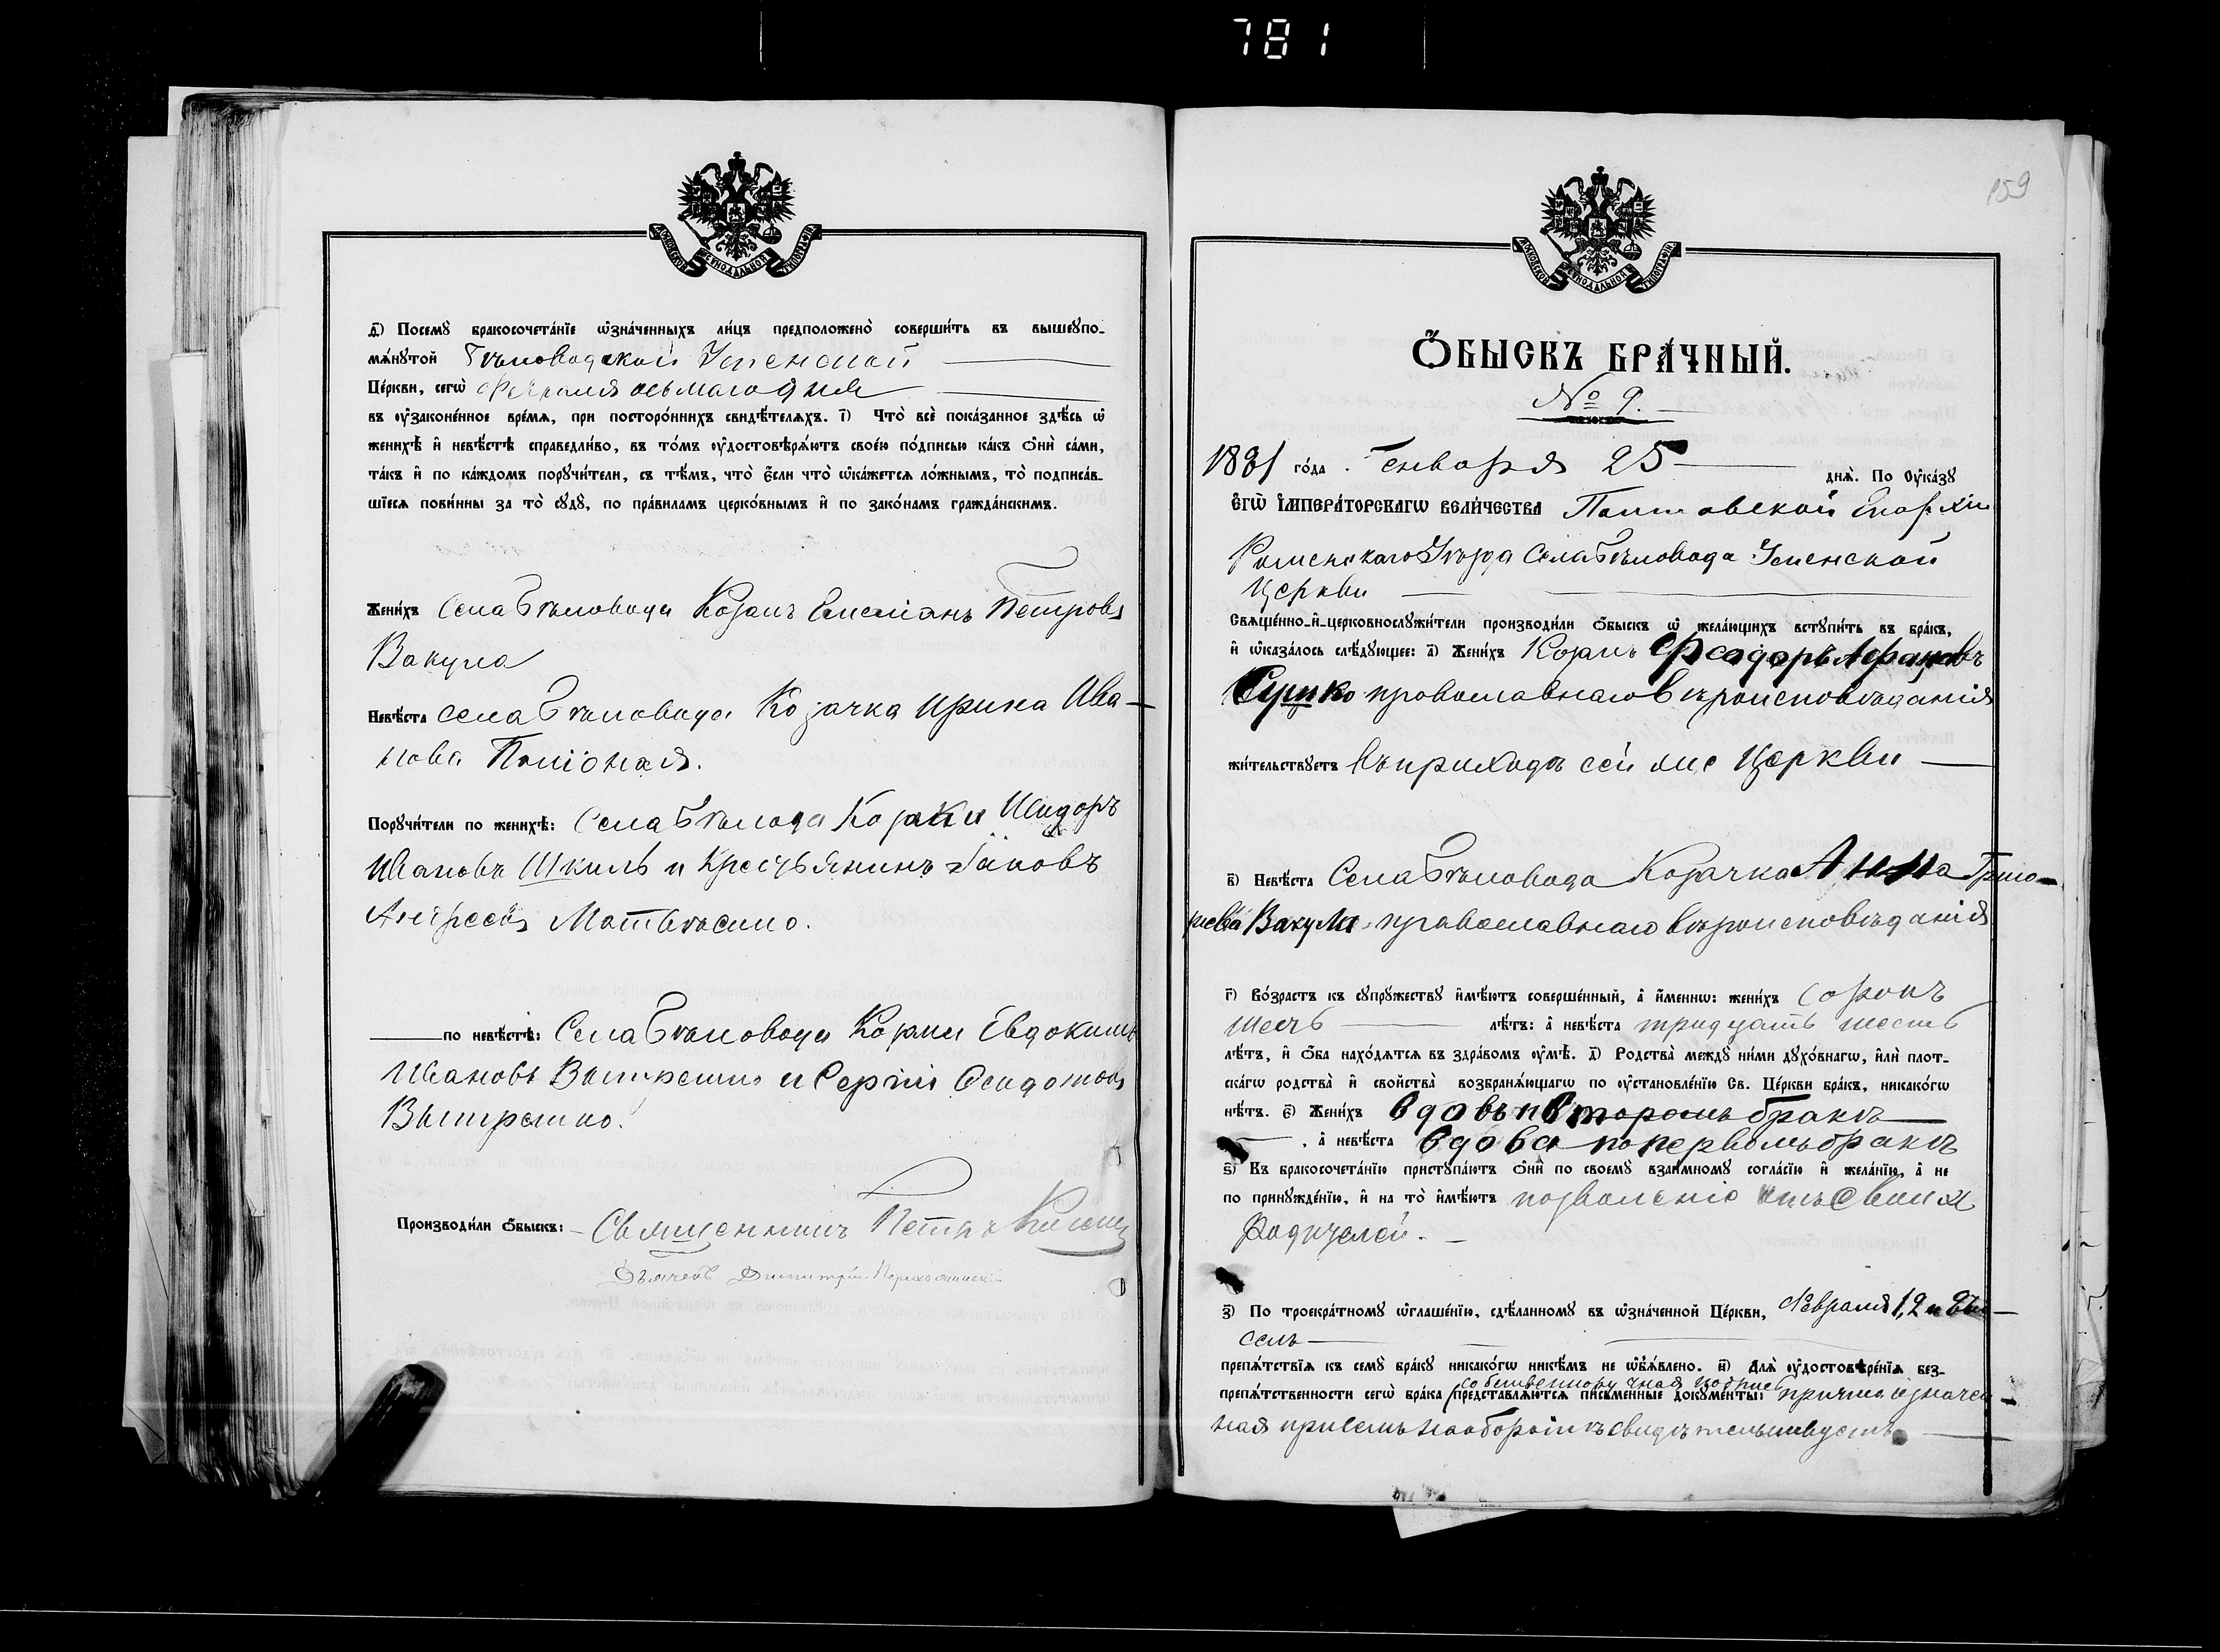 781
МОСКОВСКОЙ СѴНОДАЛЬНОЙ ТИПОГРАФІИ
д҃) Посемꙋ̀ бракосочета́нїе ѡ҆зна́ченныхъ ли́цъ предположено̀ соверши́ть въ вышеꙋпо-
мѧ́нꙋтой Бѣловодской Успенской
Це́ркви, сегѡ̀ Февраля осьмаго дня
въ ᲂу҆законе́нное вре́мѧ, при посторо́ннихъ свидѣ́телѧхъ. і҃) Что̀ всѐ пока́занное здѣ́сь ѡ҆
женихѣ̀ и҆ невѣ́стѣ справедли́во, въ то́мъ ᲂу҆достовѣрѧ́ютъ свое́ю по́дписью ка́къ ѻ҆нѝ са́ми,
та́къ и҆ по ка́ждомъ порꙋчи́тели, съ тѣ́мъ, что̀ є҆́сли что̀ ѡ҆ка́жетсѧ ло́жнымъ, то̀ подписа́в-
шїесѧ пови́нны за то̀ сꙋдꙋ̀, по пра́виламъ церко́внымъ и҆ по зако́намъ гражда́нскимъ.
Жени́хъ Села Бѣловода Козакъ Емеліанъ Петровъ
Вакула
Невѣ́ста села Бѣловода Козачка Ирина Ива-
нова
Порꙋчи́тели по женихѣ̀: Села Бѣловода Козаки Исидоръ
Ивановъ Шкиль и Крестьянинъ Іаковъ
Андреевъ Матвѣенко.
по невѣ́стѣ: Села Бѣловода Козаки Евдокимъ
Ивановъ и Сергій
Производи́ли ѻ҆́быскъ: Священникъ Петръ
Дьячекъ Димитрій
159
МОСКОВСКОЙ СѴНОДАЛЬНОЙ ТИПОГРАФІИ
Ѻ҆́БЫСКЪ БРА́ЧНЫЙ.
№ 9.
1881 го́да. Генваря 25 днѧ̀. По ᲂу҆ка́зꙋ
Є҆ГѠ̀ И҆МПЕРА́ТОРСКАГѠ ВЕЛИ́ЧЕСТВА Полтавской Епархіи
Роменскаго Уѣзда Села Бѣловода Успенской
Церкви
Свѧще́нно-и҆-церковнослꙋжи́тели производи́ли ѻ҆́быскъ ѡ҆ жела́ющихъ встꙋпи́ть въ бра́къ,
и҆ ѡ҆каза́лось слѣ́дꙋющее: а҃) Жени́хъ Козакъ Феодоръ
православнаго вѣроисповѣданія
жи́тельствꙋетъ въ приходѣ сей же Церкви
в҃) Невѣ́ста Села Бѣловода Козачка Анна Григо-
рьева Вакула православнаго вѣроисповѣданія
г҃) Во́зрастъ къ сꙋпрꙋ́жествꙋ и҆мѣ́ютъ соверше́нный, а҆ и҆́меннѡ: жени́хъ сорокъ
шесть лѣ́тъ: а҆ невѣ́ста тридцать шесть
лѣ́тъ, и҆ ѻ҆́ба нахо́дѧтсѧ въ здра́вомъ ᲂу҆мѣ̀. д҃) Родства̀ междꙋ̀ ни́ми дꙋхо́внагѡ, и҆лѝ плот-
ска́гѡ родства̀ и҆ сво́йства̀ возбранѧ́ющагѡ по ᲂу҆становле́нїю Св. Це́ркви бра́къ, никако́гѡ
нѣ́тъ. є҃) Жени́хъ вдовъ по второмъ бракѣ
, а҆ невѣ́ста вдова по первомъ бракѣ
ѕ҃) Къ бракосочета́нїю пристꙋпа́ютъ ѻ҆нѝ по своемꙋ̀ взаи́мномꙋ согла́сїю и҆ жела́нїю, а҆ не
по принꙋжде́нїю, и҆ на то̀ и҆мѣ́ютъ позволеніе отъ своихъ
родителей.
з҃) По троекра́тномꙋ ѡ҆глаше́нїю, сдѣ́ланномꙋ въ ѡ҆зна́ченной Це́ркви, Февраля 1, 2 и
препѧ́тствїѧ къ семꙋ̀ бра́кꙋ никако́гѡ никѣ́мъ не ѡ҆б̾ѧ́влено. и҃) Длѧ̀ ᲂу҆достовѣре́нїѧ без-
препѧ́тственности сегѡ̀ бра́ка представлѧ́ютсѧ пи́сьменные докꙋме́нты:
собственноручная